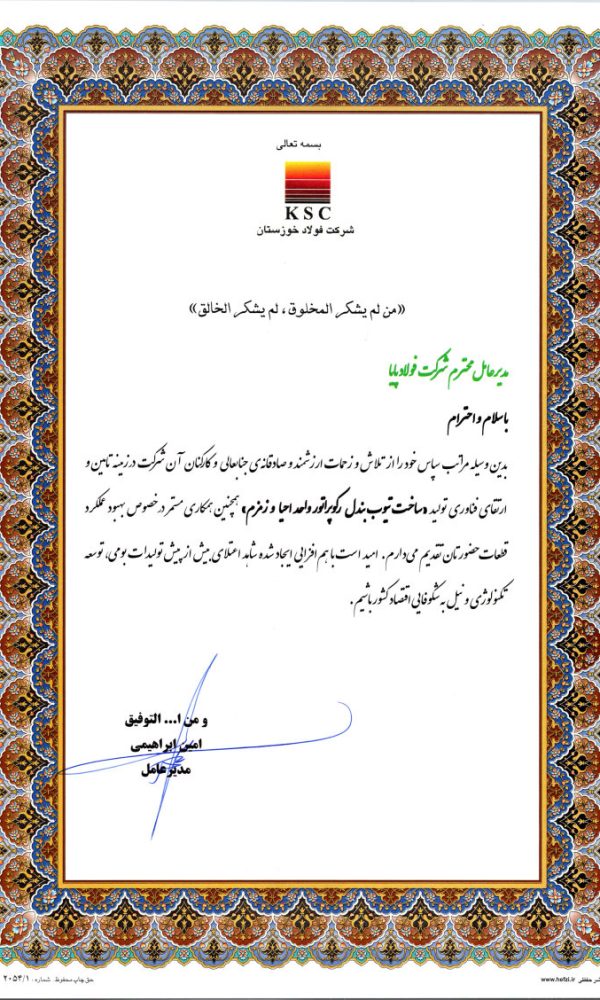 بسمه تعالی
KSC
شرکت فولاد خوزستان
«من لم یشکر المخلوق، لم یشکر الخالق»
مدیرعامل محترم شرکت فولاد پایا
باسلام و احترام
بدین وسیله مراتب سپاس خود را از تلاش و زحمات ارزشمند و صادقانه‌ی جنابعالی و کارکنان آن شرکت در زمینه تامین و
ارتقای فناوری تولید «ساخت تیوب بندل رکوپراتور واحد احیا و زمزم» همچنین همکاری مستمر درخصوص بهبود عملکرد
قطعات حضورتان تقدیم می‌دارم. امید است با هم افزایی ایجاد شده شاهد اعتلای بیش از پیش تولیدات بومی، توسعه
تکنولوژی و نیل به شکوفایی اقتصاد کشور باشیم.
و من ا... التوفیق
امین ابراهیمی
مدیرعامل
حق چاپ محفوظ شماره: ۲۰۵۴/۱
نشر حفظی www.hefzi.ir